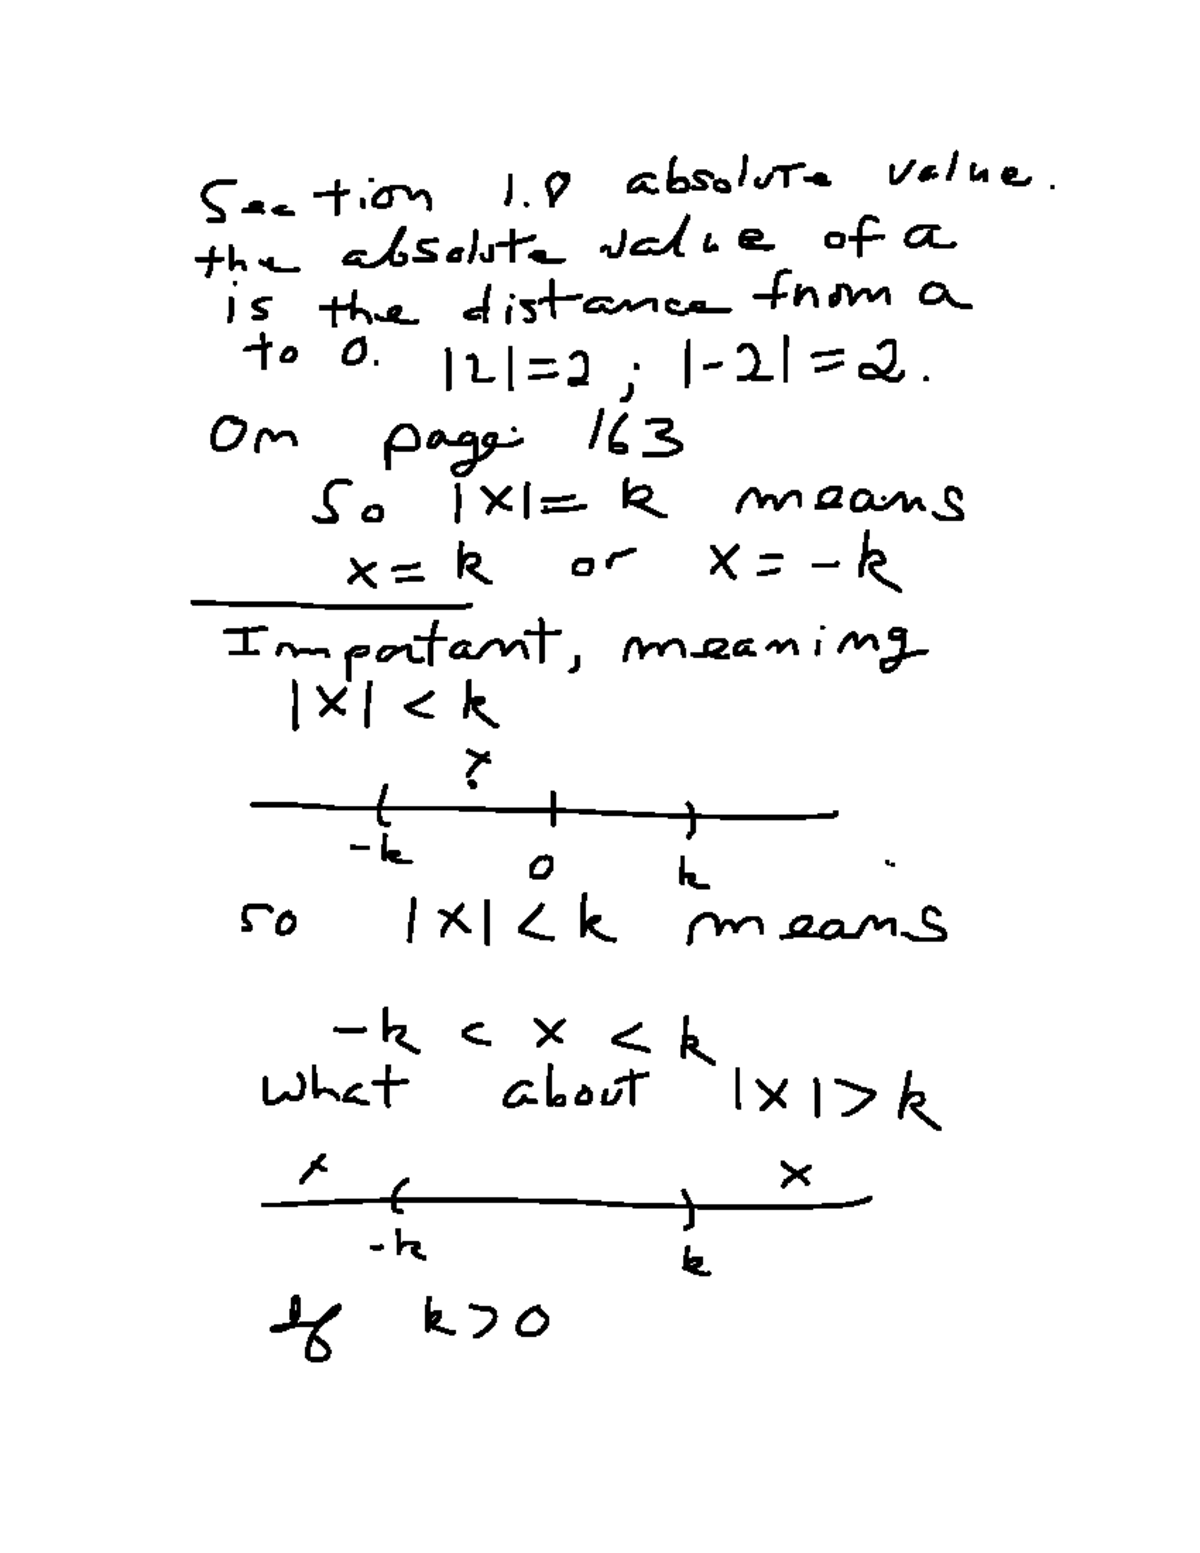 Section 1.8 absolute value.
the absolute value of a
is the distance from a
to 0. |2|=2 ; |-2|=2.
On page 163
So |x|= k means
x = k or x = -k
Important, meaning
|x| < k
x
-k 0 k
so |x| < k means
-k < x < k
what about |x| > k
x x
-k k
If k>0